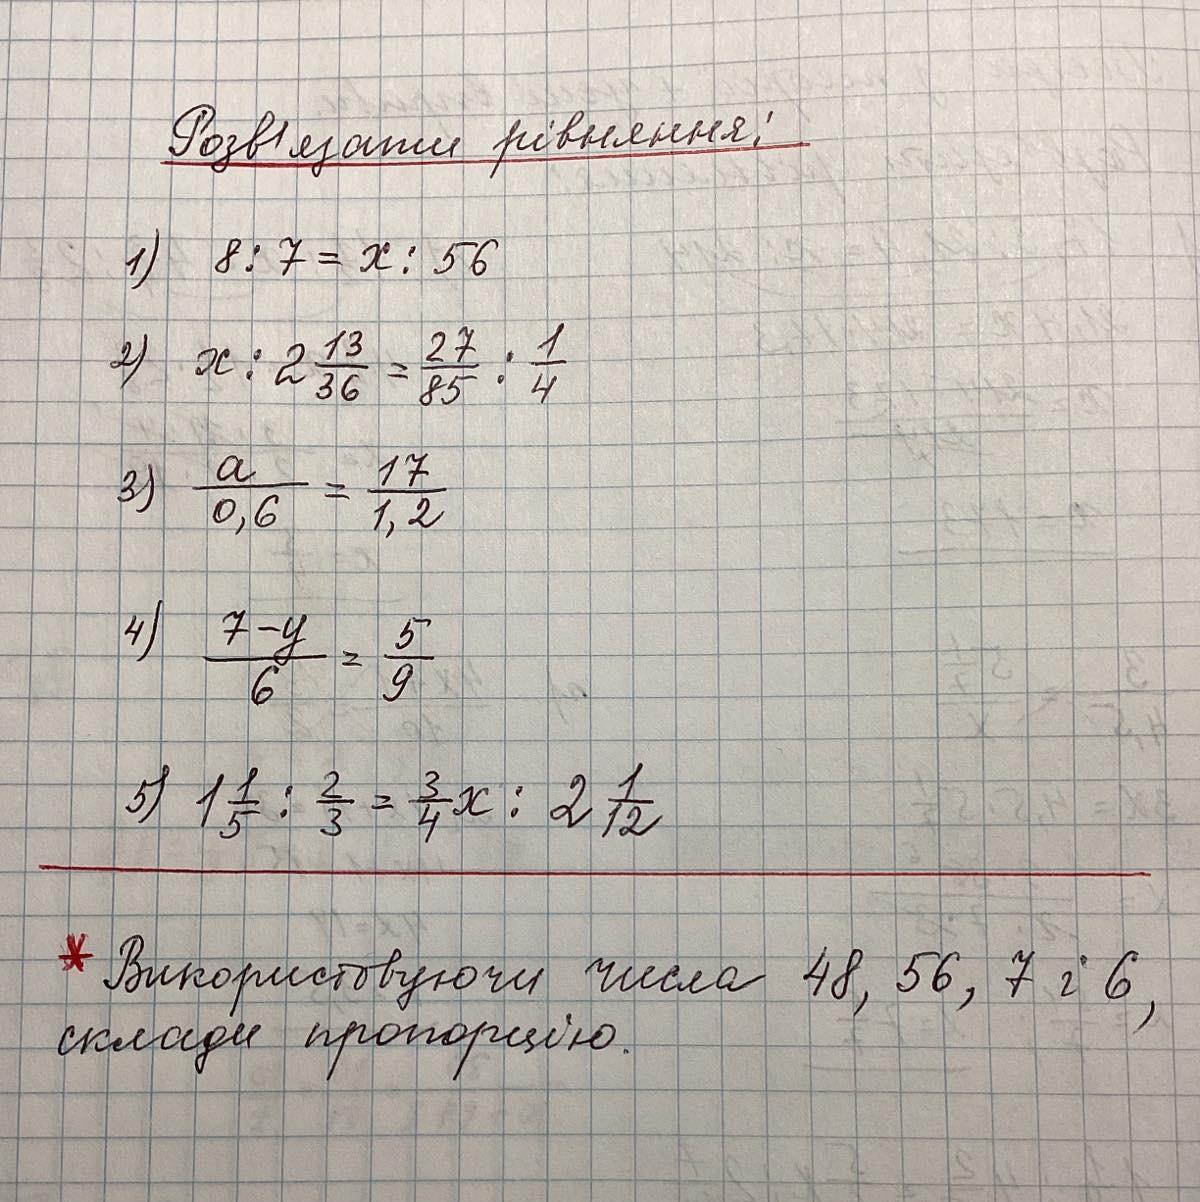 Розв'язати рівняння:
1) 8 : 7 = x : 56
2) x : 2 13/36 = 27/85 : 1/4
3) a/0,6 = 17/1,2
4) 7-y/6 = 5/9
5) 1 1/5 : 2/3 = 3/4 x : 2 1/12
* Використовуючи числа 48, 56, 7 і 6,
склади пропорцію.